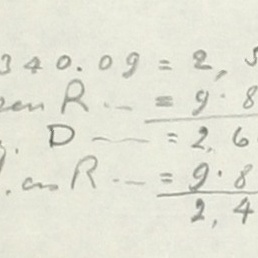 340.09 = 2, 5
R -- = 9.8
D -- = 2, 6
R -- = 9.8
2, 4